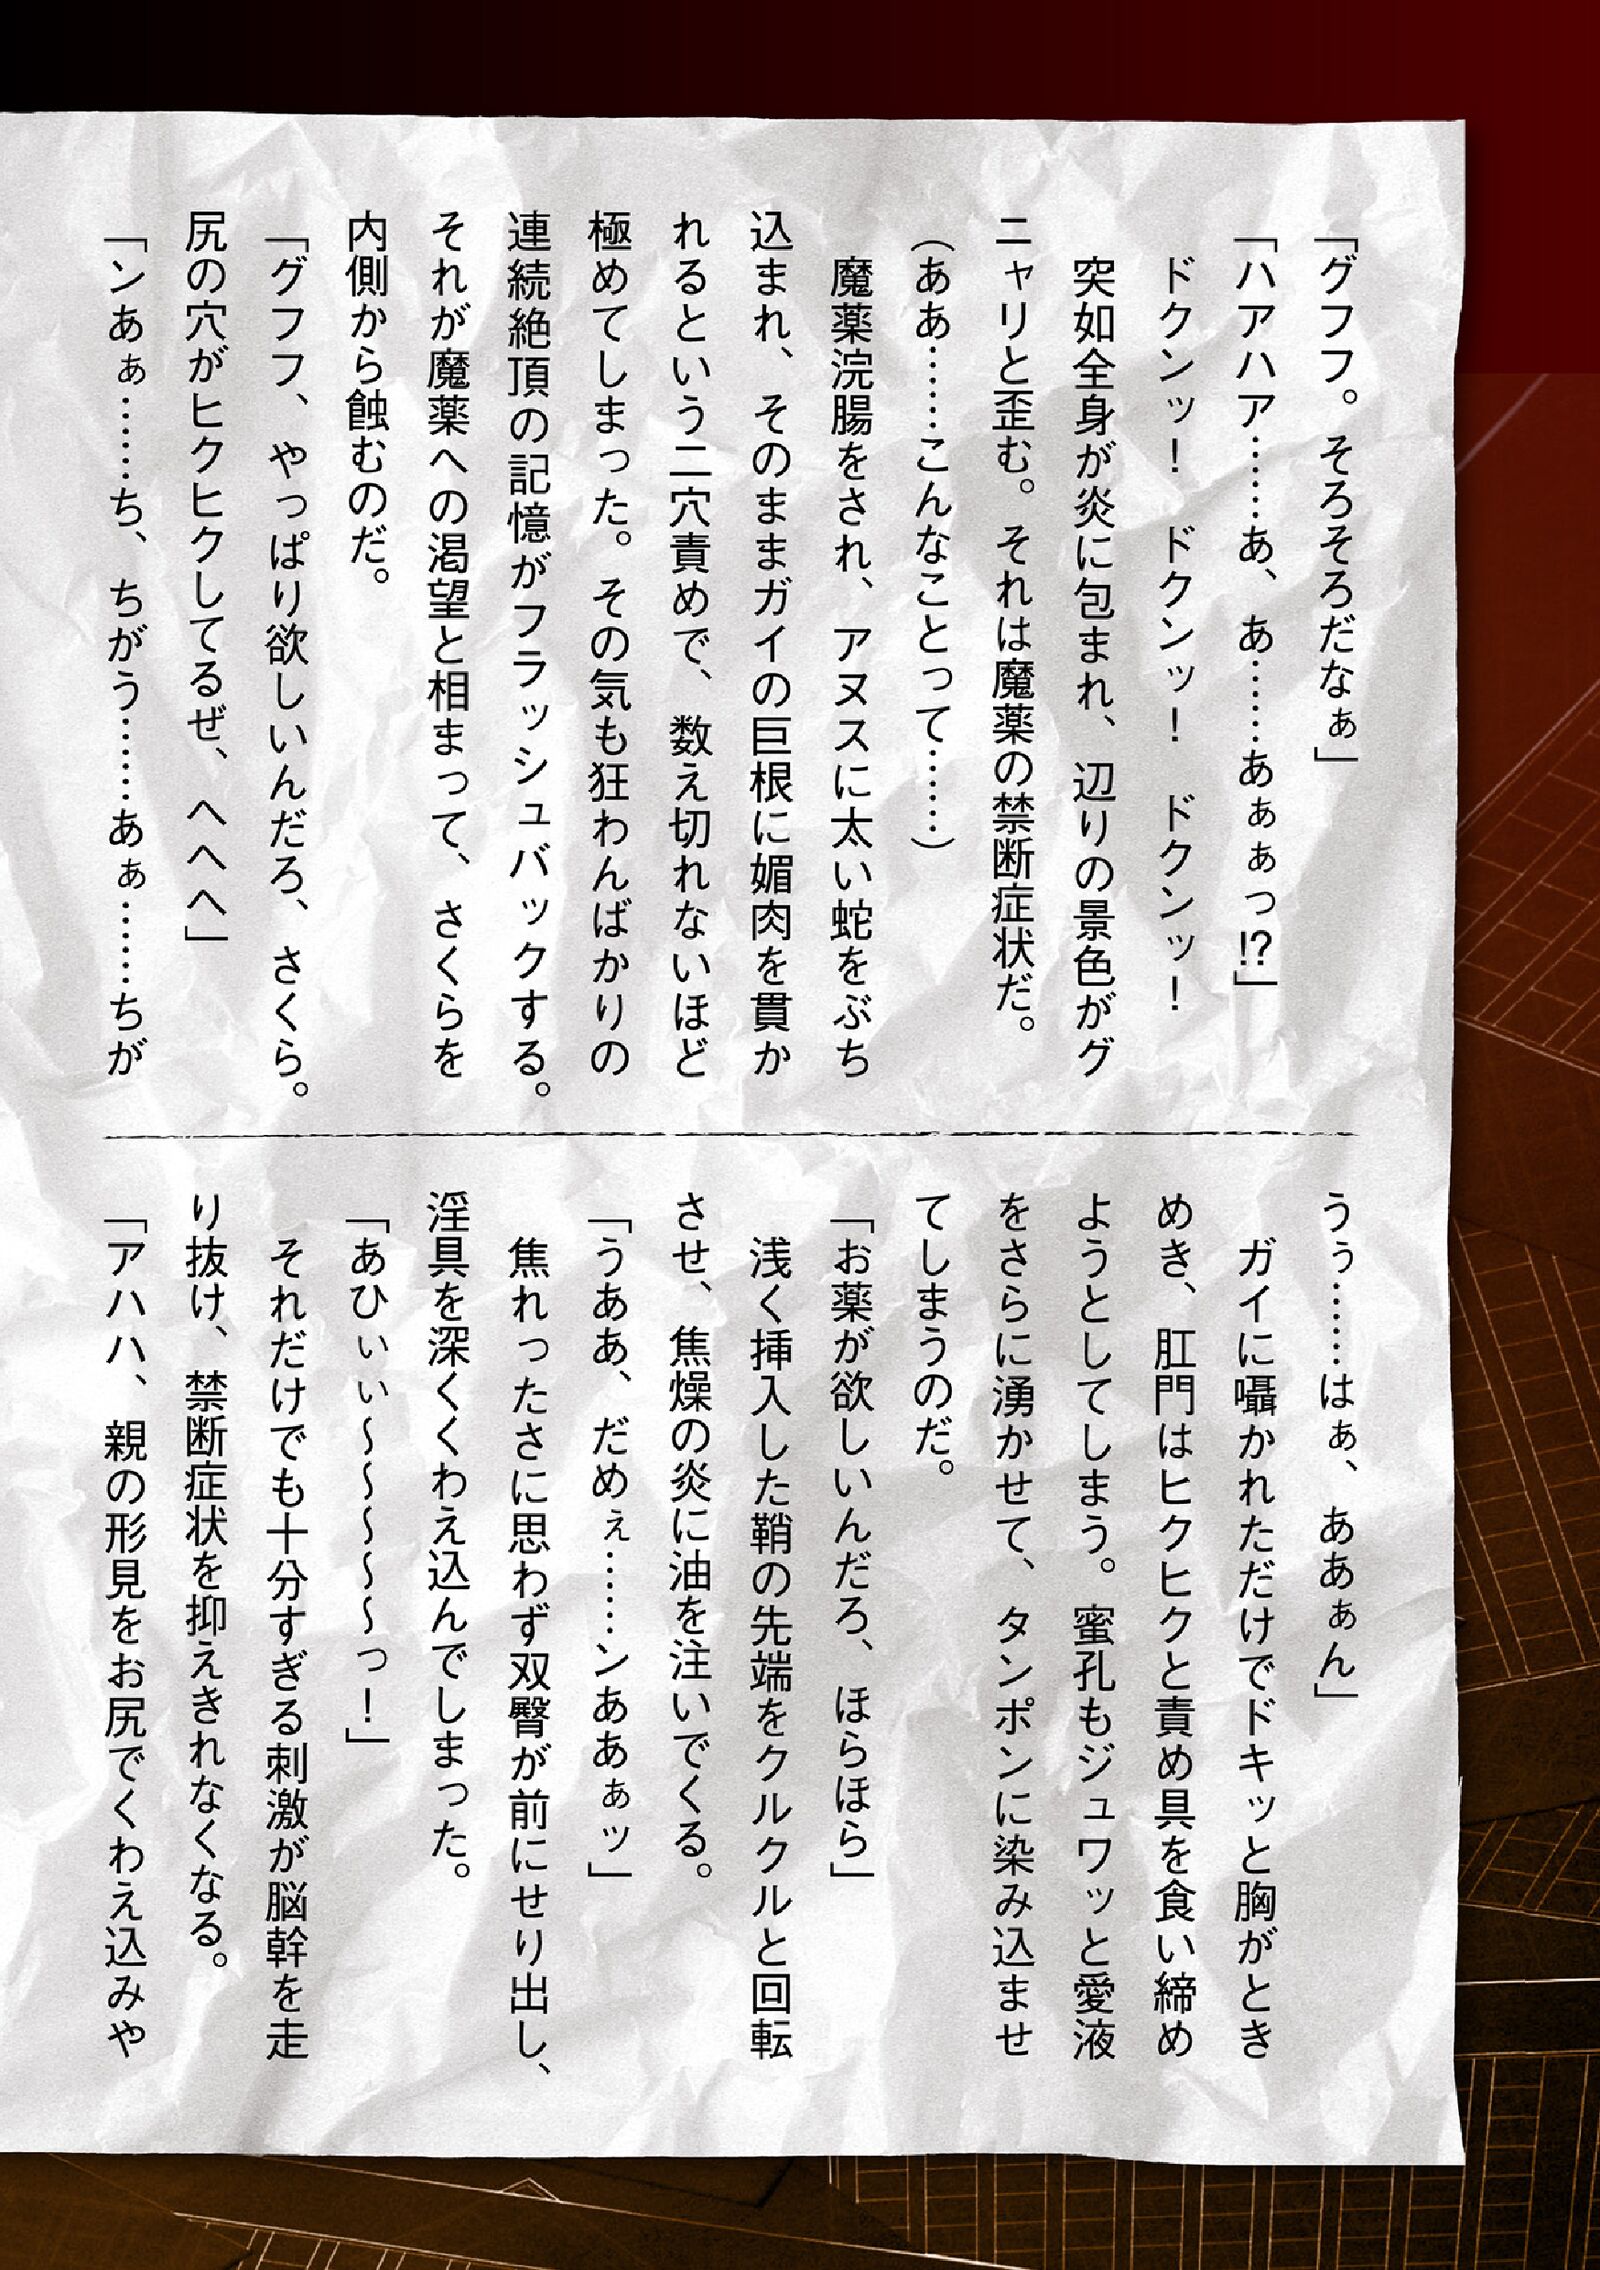 「グフフ。そろそろだなぁ」
「ハアハア……あ、あ……あぁぁっ!?」
ドクンッ！　ドクンッ！　ドクンッ！
突如全身が炎に包まれ、辺りの景色がグ
ニャリと歪む。それは魔薬の禁断症状だ。
（ああ……こんなことって……）
魔薬浣腸をされ、アヌスに太い蛇をぶち
込まれ、そのままガイの巨根に媚肉を貫か
れるという二穴責めで、数え切れないほど
極めてしまった。その気も狂わんばかりの
連続絶頂の記憶がフラッシュバックする。
それが魔薬への渇望と相まって、さくらを
内側から蝕むのだ。
「グフフ、やっぱり欲しいんだろ、さくら。
尻の穴がヒクヒクしてるぜ、へへへ」
「ンあぁ……ち、ちがう……あぁ……ちが
うぅ……はぁ、ああぁん」
ガイに囁かれただけでドキッと胸がとき
めき、肛門はヒクヒクと責め具を食い締め
ようとしてしまう。蜜孔もジュワッと愛液
をさらに湧かせて、タンポンに染み込ませ
てしまうのだ。
「お薬が欲しいんだろ、ほらほら」
浅く挿入した鞘の先端をクルクルと回転
させ、焦燥の炎に油を注いでくる。
「うああ、だめぇ……ンああぁッ」
焦れったさに思わず双臀が前にせり出し、
淫具を深くくわえ込んでしまった。
「あひぃぃ～～～～～っ！」
それだけでも十分すぎる刺激が脳幹を走
り抜け、禁断症状を抑えきれなくなる。
「アハハ、親の形見をお尻でくわえ込みや